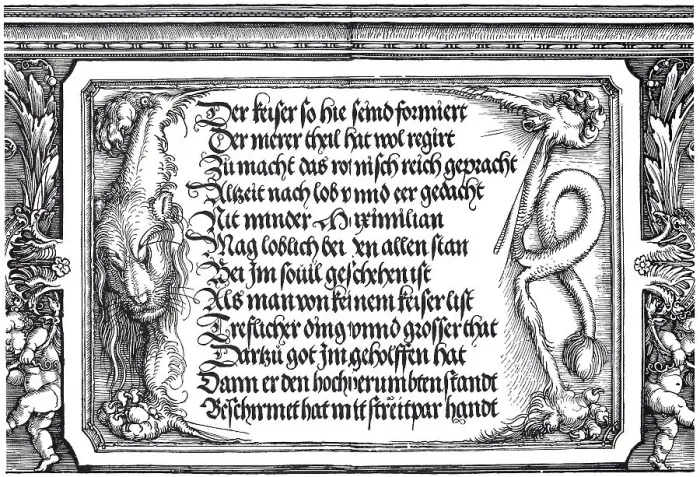 Der keiser so hie seind formiert
Der merer theil hat wol regirt
Zu macht das romisch reich gepracht
Altzeit nach lob vnnd eer gedacht
Nit minder Maximilian
Mag loblich bei yn allen stan
Bei Im souil geschehen ist
Als man von keinem keiser list
Treflicher ding vnnd grosser that
Dartzu got Im geholffen hat
Dann er den hochverumbten standt
Beschirmet hat mit streitpar handt